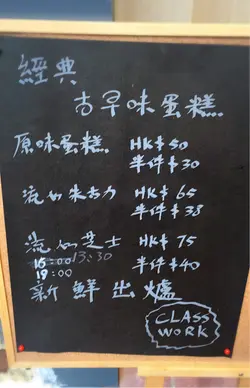 經典
古早味蛋糕
原味蛋糕 HK$50
半件$30
流心朱古力 HK$65
半件$38
流心芝士 HK$75
16:00 13:30 半件$40
19:00
新鮮出爐
CLASS
WORK